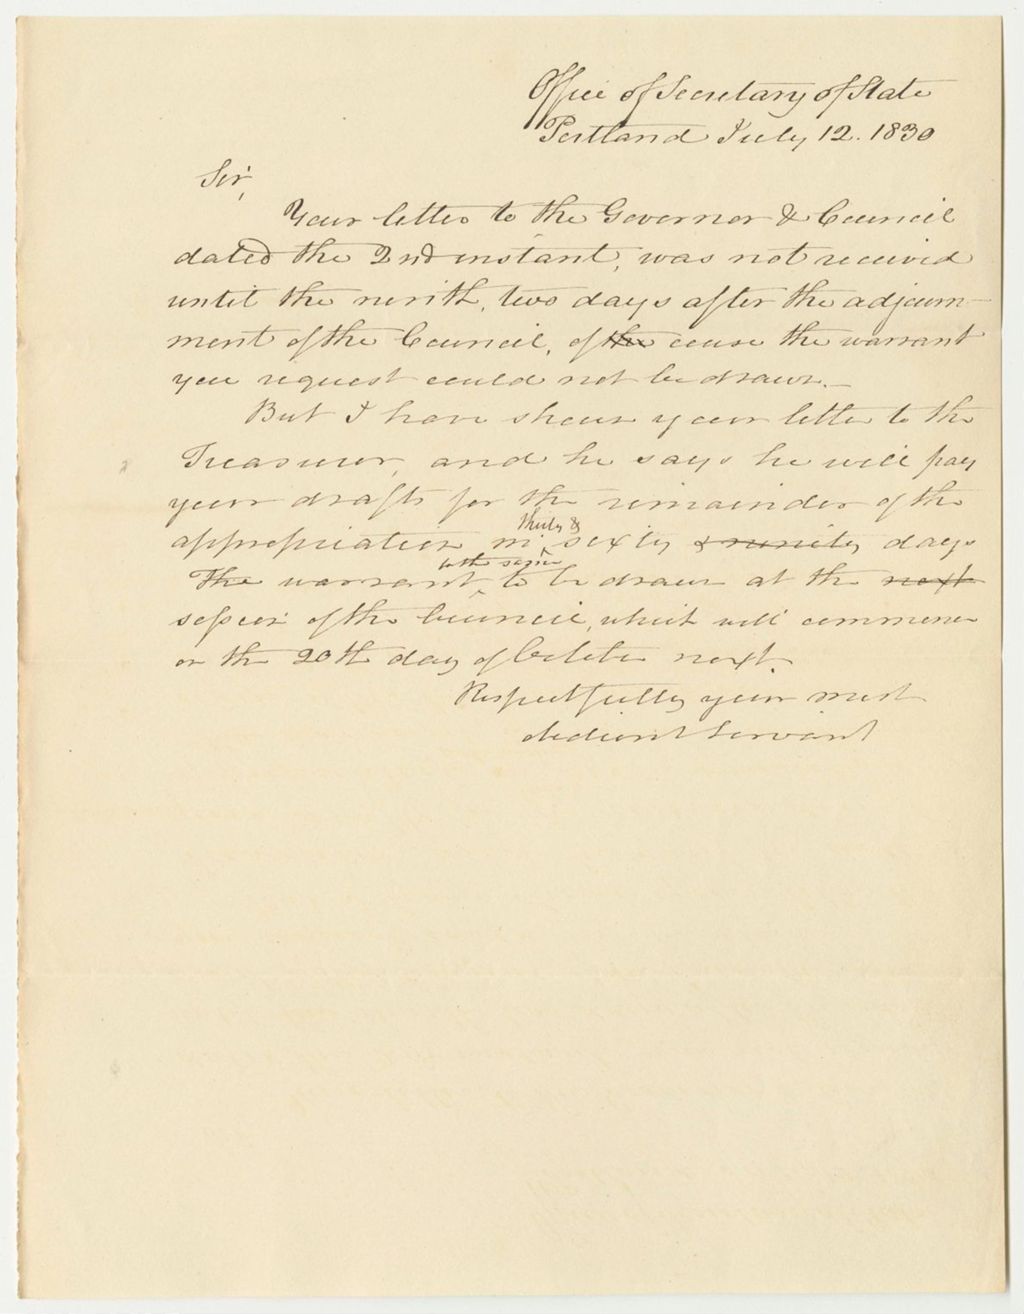 Office of Secretary of State
Portland July 12. 1830
Sir,
Your letter to the Governor & Council
dated the 2nd instant, was not received
until the ninth, two days after the adjourn-
ment of the Council, of the course the warrant
you request could not be drawn.—
But I have shown your letter to the
Treasurer, and he says he will pay
your drafts for the remainder of the
thirty &
appropriation in sixty & ninety days
The warrant to be drawn at the next
session of the Council, which will commence
on the 20th day of October next.
Respectfully your most
obedient Servant